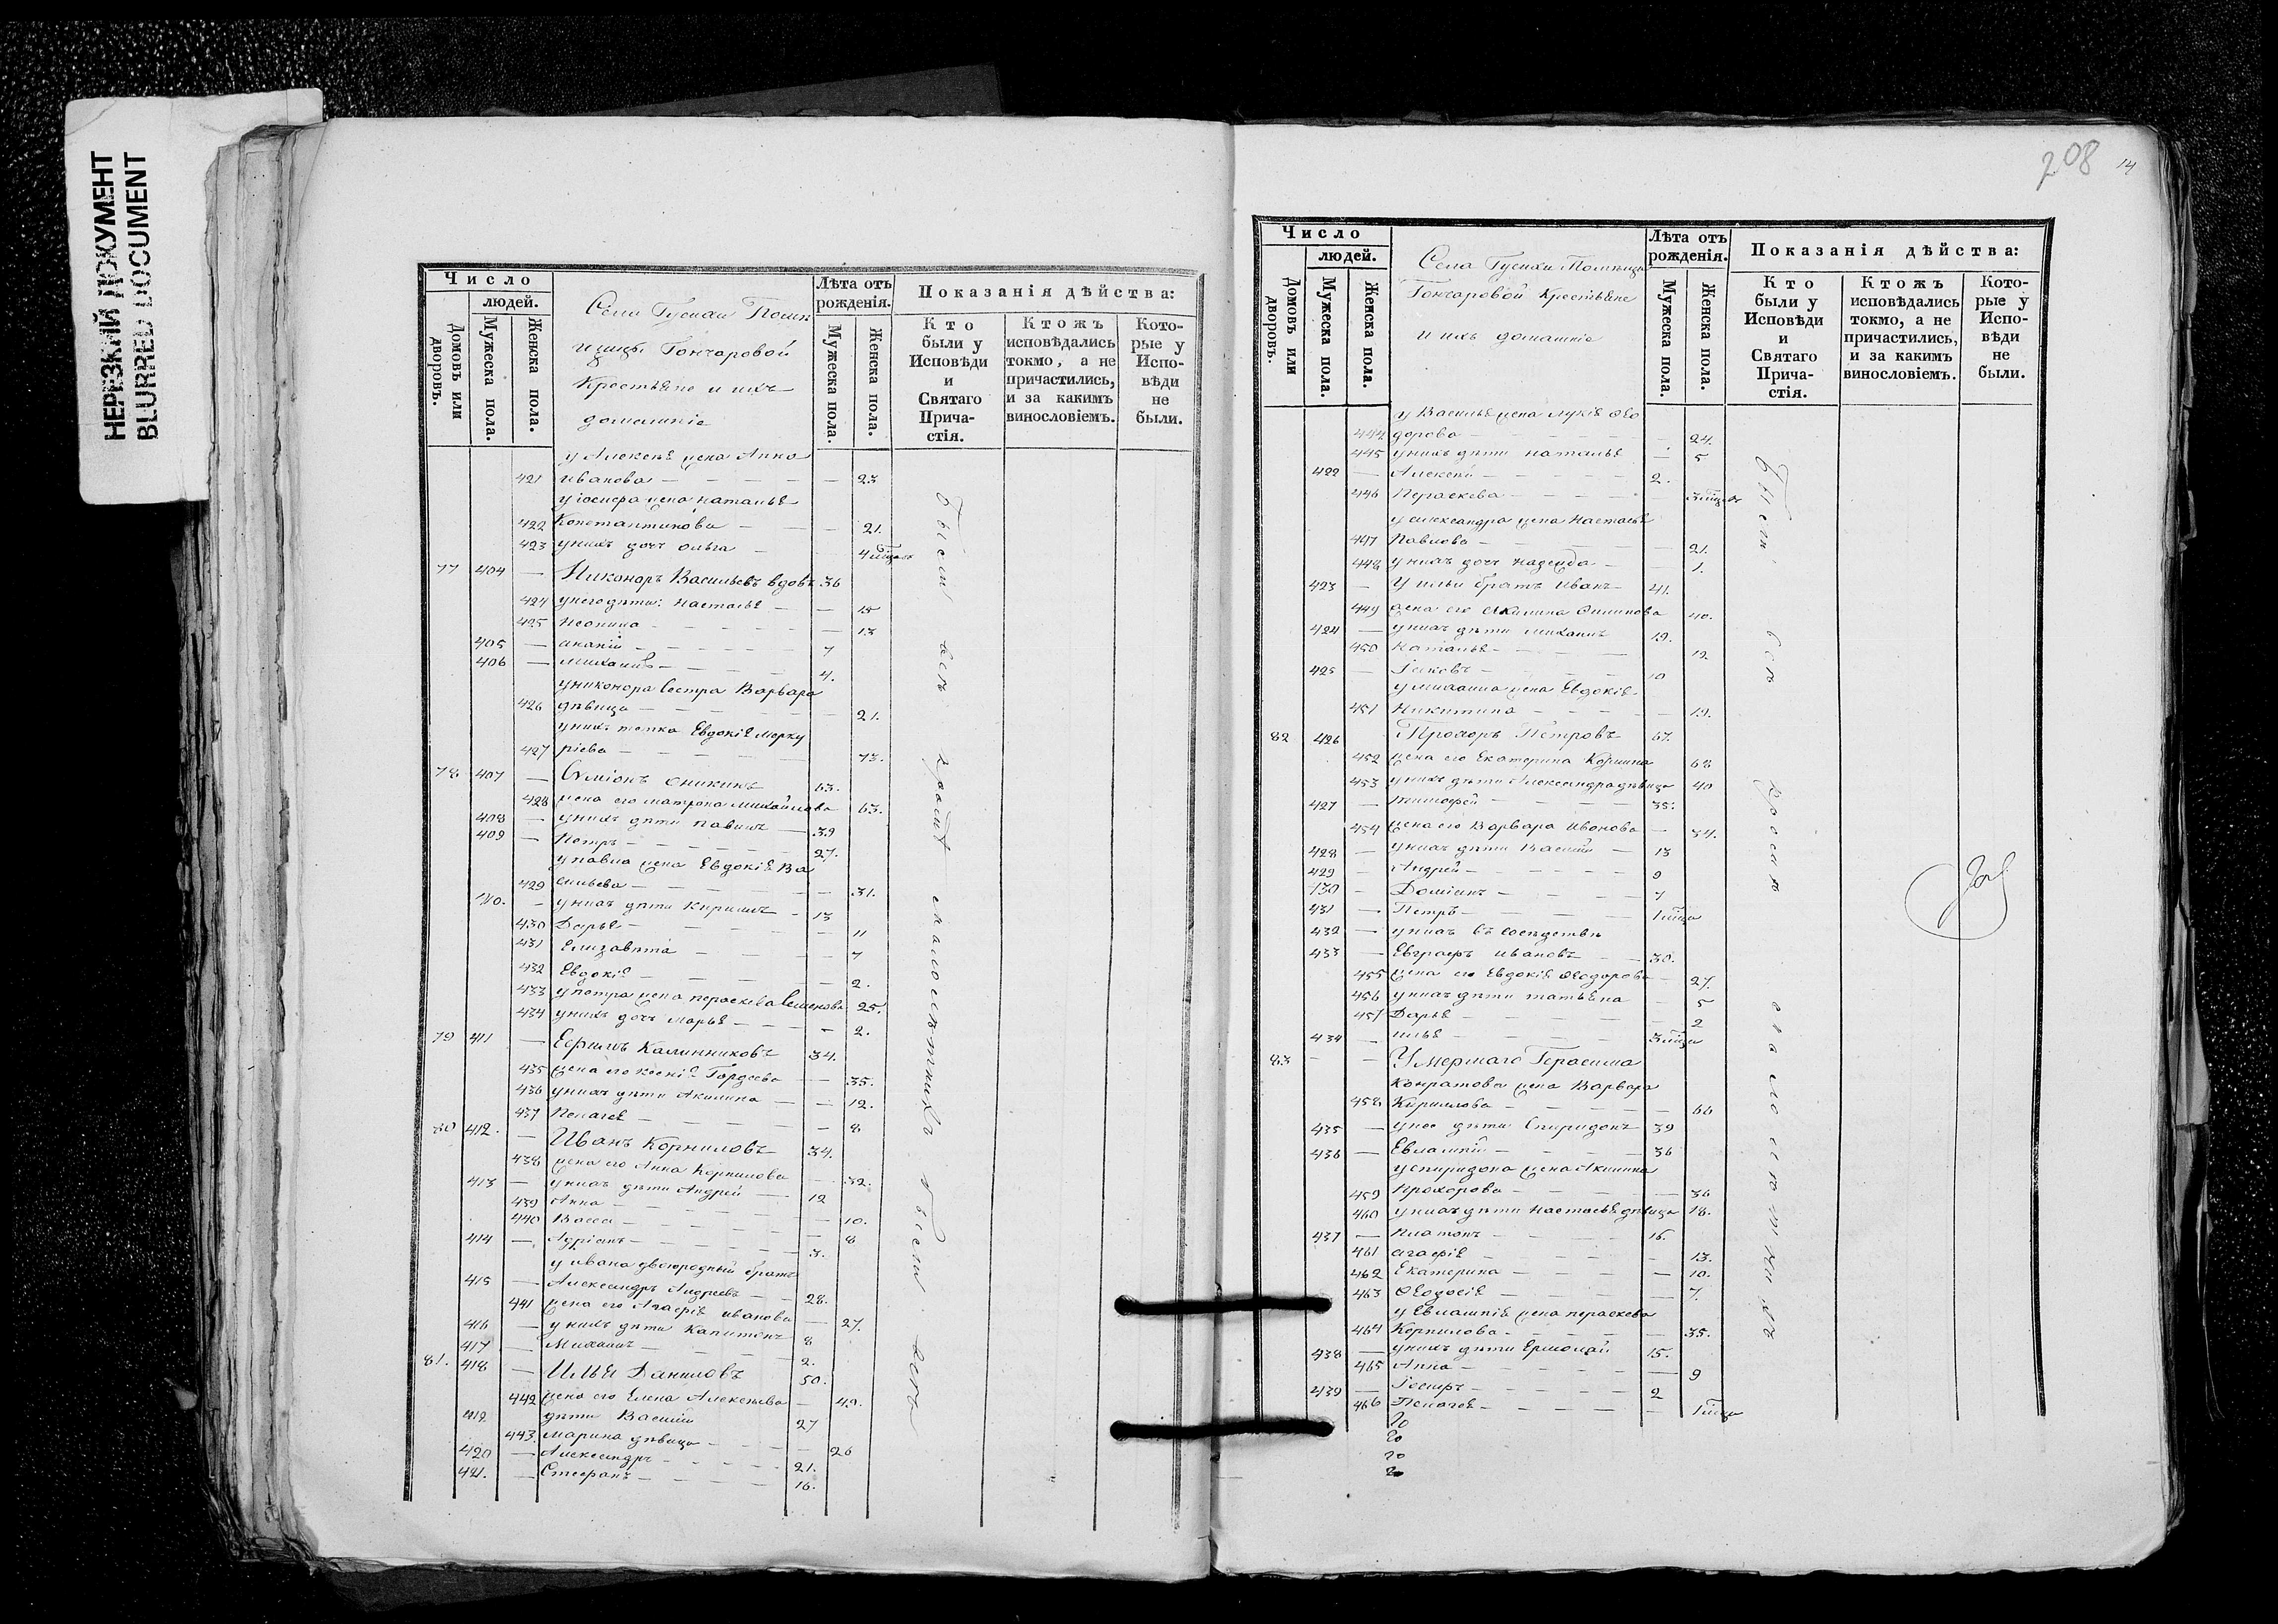 НЕРЕЗКИЙ ДОКУМЕНТ
BLURRED DOCUMENT
Число
людей.
Домовъ или дворовъ.
Мужеска пола.
Женска пола.
Села Гусихи Помѣ
щицы Гончаровой
Крестьяне и ихъ
домашніе
Лѣта отъ рожденія.
Мужеска пола.
Женска пола.
Показанія дѣйства:
Кто были у Исповѣди и Святаго Прича-стія.
Ктожъ исповѣдались токмо, а не причастились, и за какимъ винословіемъ.
Кото-рые у Испо-вѣди не были.
у Алексѣя жена Анна
421 Иванова — 23
у Іосифа жена Наталья
422 Константинова — 21.
423 у нихъ дочь Ольга — 4
77 404 — Никоноръ Васильевъ вдовъ 36
424 у него дѣти: Настасья — 15
425 Неонила — 13
405 — Ананій — 7
406 — Михаилъ — 4.
у Никонора сестра Варвара
426 дѣвица — 21.
у нихъ тетка Евдокія Мерку
427 ріева — 73.
78 407 — Сѵміонъ 63.
428 жена его Матрона Михайлова 63.
408 — у нихъ дѣти Павилъ — 39
409 — Петръ — 27.
у Павла жена Евдокія Ва
429 сильева — 31.
410. — у нихъ дѣти Кирилъ — 13
430 Дарья — 11
431 Елизавѣта — 7
432 Евдокія — 2.
433 у Петра жена Пераскева Семенова 25.
434 у нихъ дочь Марья — 2.
79 411 — Ефимъ Калинниковъ 34.
435 жена его Ксенія Гордеева — 35.
436 у нихъ дѣти Акилина — 12.
437 Пелагея — 8
80 412. — Иванъ Корниловъ 34.
438 жена его Анна Корнилова — 32.
413 — у нихъ дѣти Андрей — 12
439 Анна — 10.
440 Васса — 8
414 — Адріанъ — 3.
у Ивана двоюродный братъ
415 — Александръ Андреевъ — 28.
441 жена его Агафія Иванова — 27.
416 — у нихъ дѣти Капитонъ 8
417 — Михаилъ — 2.
81. 418 — Илья Даниловъ 50.
442 жена его Елена Алексѣева — 49.
419 дѣти Василій 27
443. Марина дѣвица — 26
420 — Александръ — 21.
421. — Стефанъ — 16.
были всѣ кромѣ малолѣтнихъ
208 14
Число
людей.
Домовъ или дворовъ.
Мужеска пола.
Женска пола.
Села Гусихи Помѣщицы
Гончаровой Крестьяне
и ихъ домашніе
Лѣта отъ рожденія.
Мужеска пола.
Женска пола.
Показанія дѣйства:
Кто были у Исповѣди и Святаго Прича-стія.
Ктожъ исповѣдались токмо, а не причастились, и за какимъ винословіемъ.
Кото-рые у Испо-вѣди не были.
у Василья жена Лукія Ѳео
444 дорова — 24.
445 у нихъ дѣти Наталья — 5
422 — Алексѣй — 2.
446 Пераскева — 3
у Александра жена Настасья
447 Павлова — 21.
448 у нихъ дочь Надежда — 1.
423 — У Ильи братъ Иванъ 41.
449 жена его Акилина 40.
424 — у нихъ дѣти Михаилъ 19.
450 Наталья — 12
425 — Іаковъ — 10
у Михаила жена Евдокія
451 Никитина — 19.
82 426 Прохоръ Петровъ 67.
452 жена его Екатерина 68
453 у нихъ дѣти Александра дѣвица 40
427 — Тимофей — 35.
454 жена его Варвара Иванова — 34.
428 — у нихъ дѣти Василій — 13
429 — Андрей — 9
430 — Доміанъ — 7
431 — Петръ — 1
432 — у нихъ въ сосѣдствѣ
433 — Евграфъ Ивановъ — 30.
455 жена его Евдокія Ѳеодорова — 27.
456 у нихъ дѣти Татьяна — 5
457 Дарья — 2
434 — Илья — 3
83 — — Умершаго Герасима
Конратова жена Варвара
458 Кирилова — 66
435 — у нее дѣти Спиридонъ 39
436 — Евлампій — 36
у Спиридона жена Акилина
459 Прохорова — 36
460 у нихъ дѣти Настасья дѣвица 18.
437 — Платонъ — 16.
461 Агафія — 13.
462 Екатерина — 10.
463 Ѳеодосія — 7.
у Евлампія жена Пераскева
464 Корнилова — 35.
438 — у нихъ дѣти Ермолай 15.
465 Анна — 9
439 — Іосифъ — 2
466 Пелагея — 1
были всѣ кромѣ малолѣтнихъ